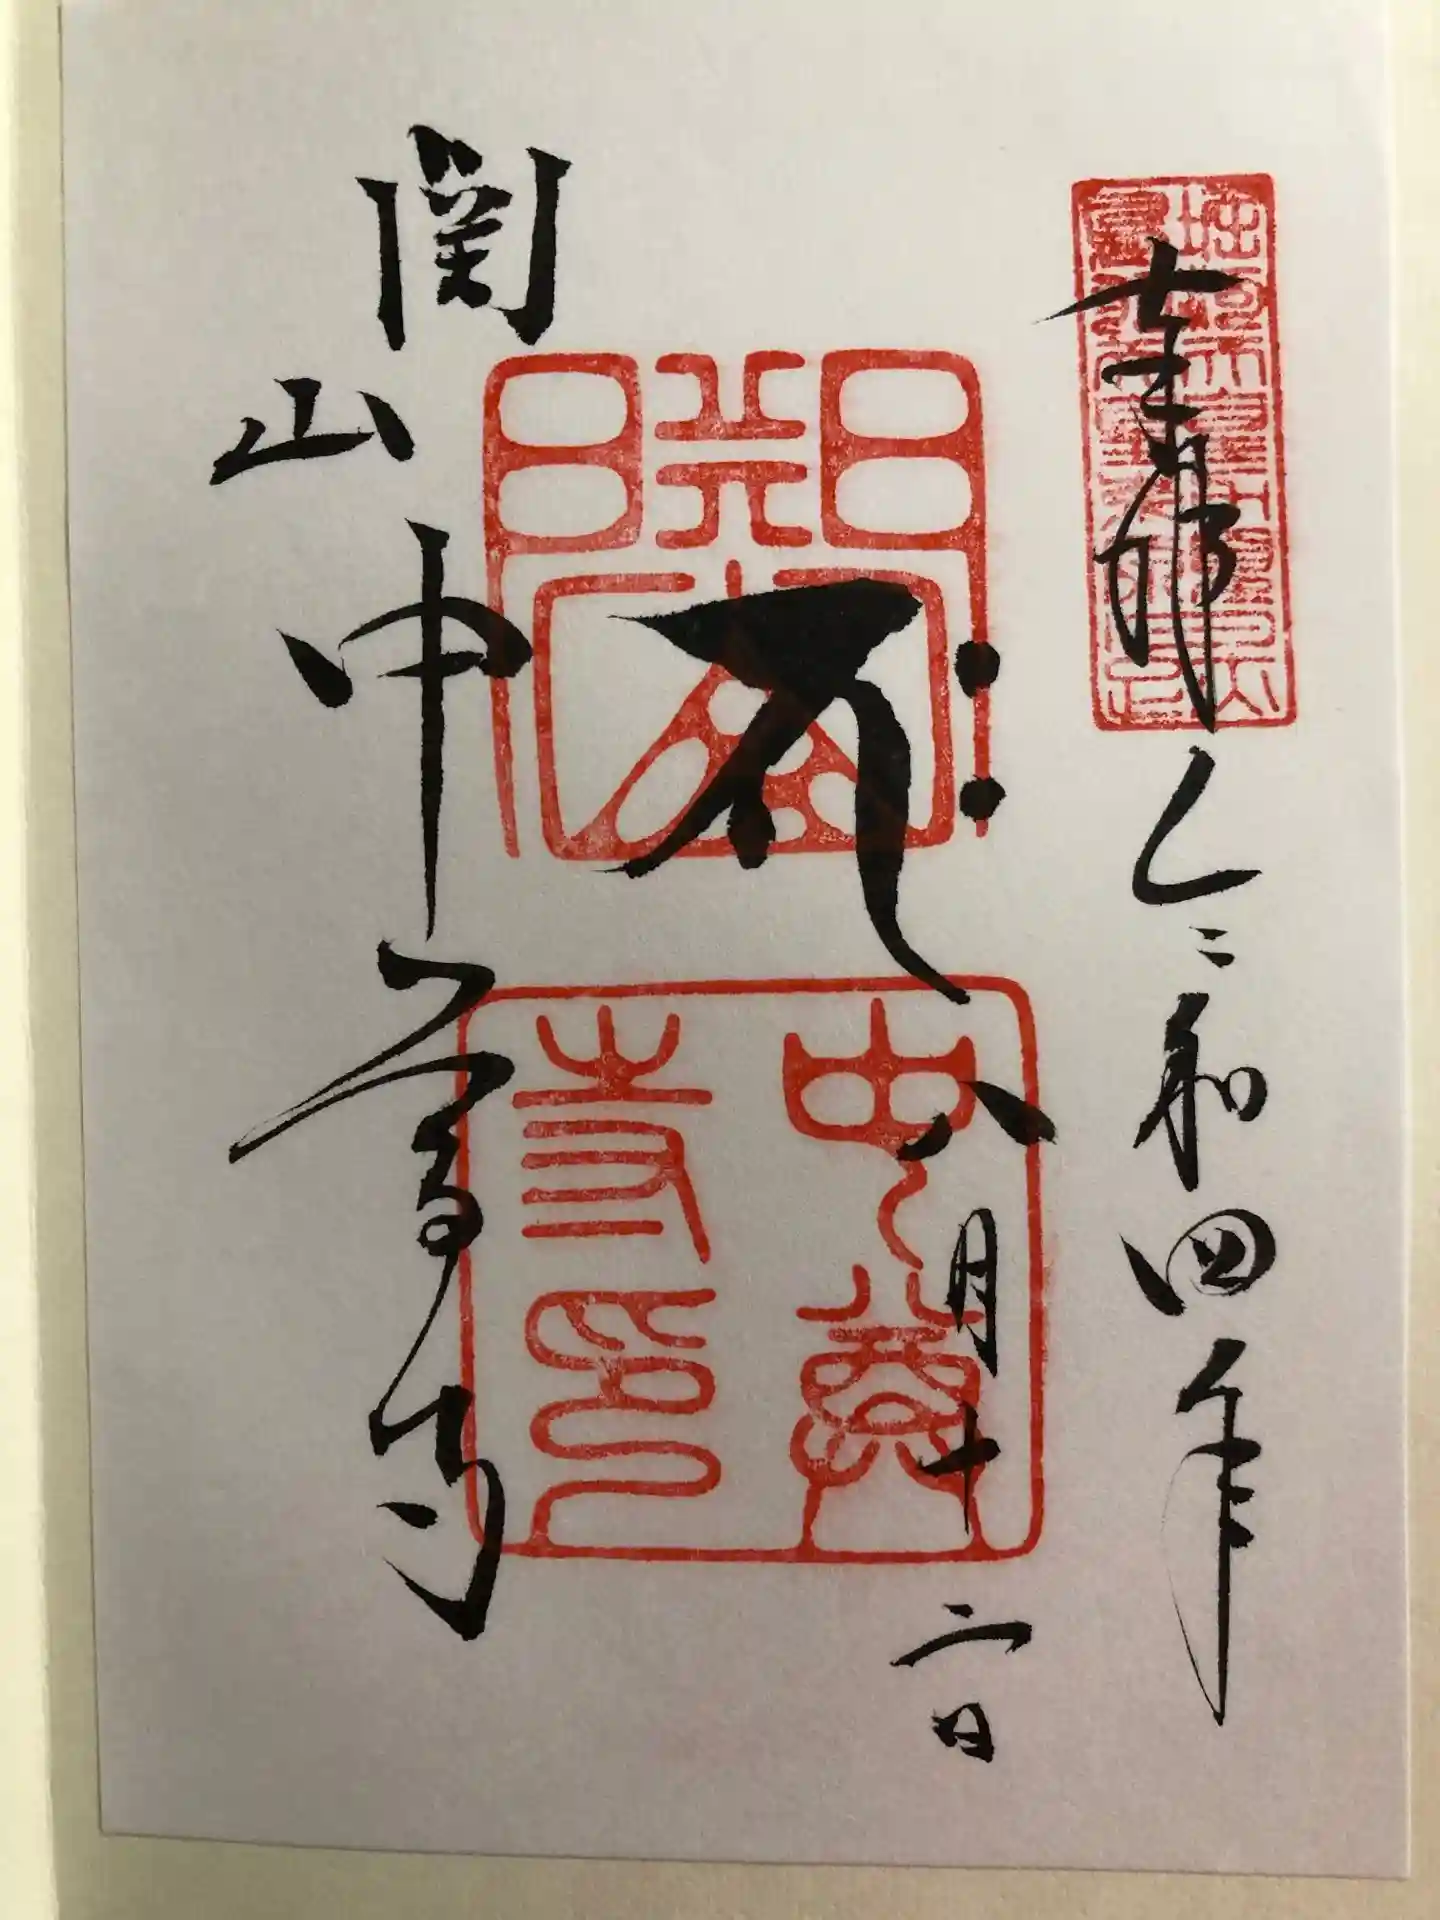 奉拝 令和四年
八月十二日
関山
中尊寺印
関山 中尊寺